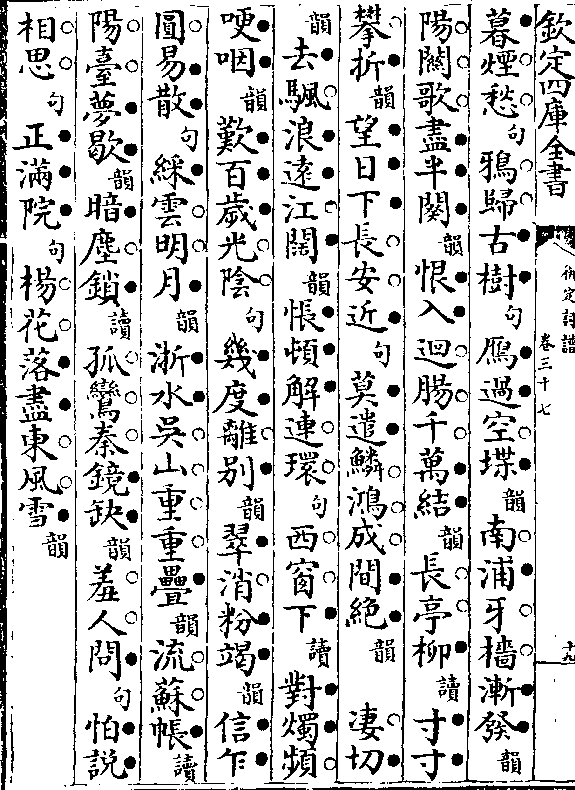 欽定四庫全書
御定詞譜
卷三十七
十九
暮煙愁句鴉歸古樹句鴈過空堞韻南浦牙檣漸發韻
陽關歌盡半闋韻恨入迴腸千萬結韻長亭柳讀寸寸
攀折韻望日下長安近句莫遣鱗鴻成間絶韻 凄切
韻去颿浪遠江闊韻悵頓解連環句西窗下讀對燭頻
哽咽韻歎百歲光陰句幾度離別韻翠消粉竭韻信乍
圓易散句綵雲明月韻浙水吳山重重疊韻流蘇帳讀
陽臺夢歇韻暗塵鎖讀孤鸞秦鏡缺韻羞人問句怕說
相思句正滿院句楊花落盡東風雪韻